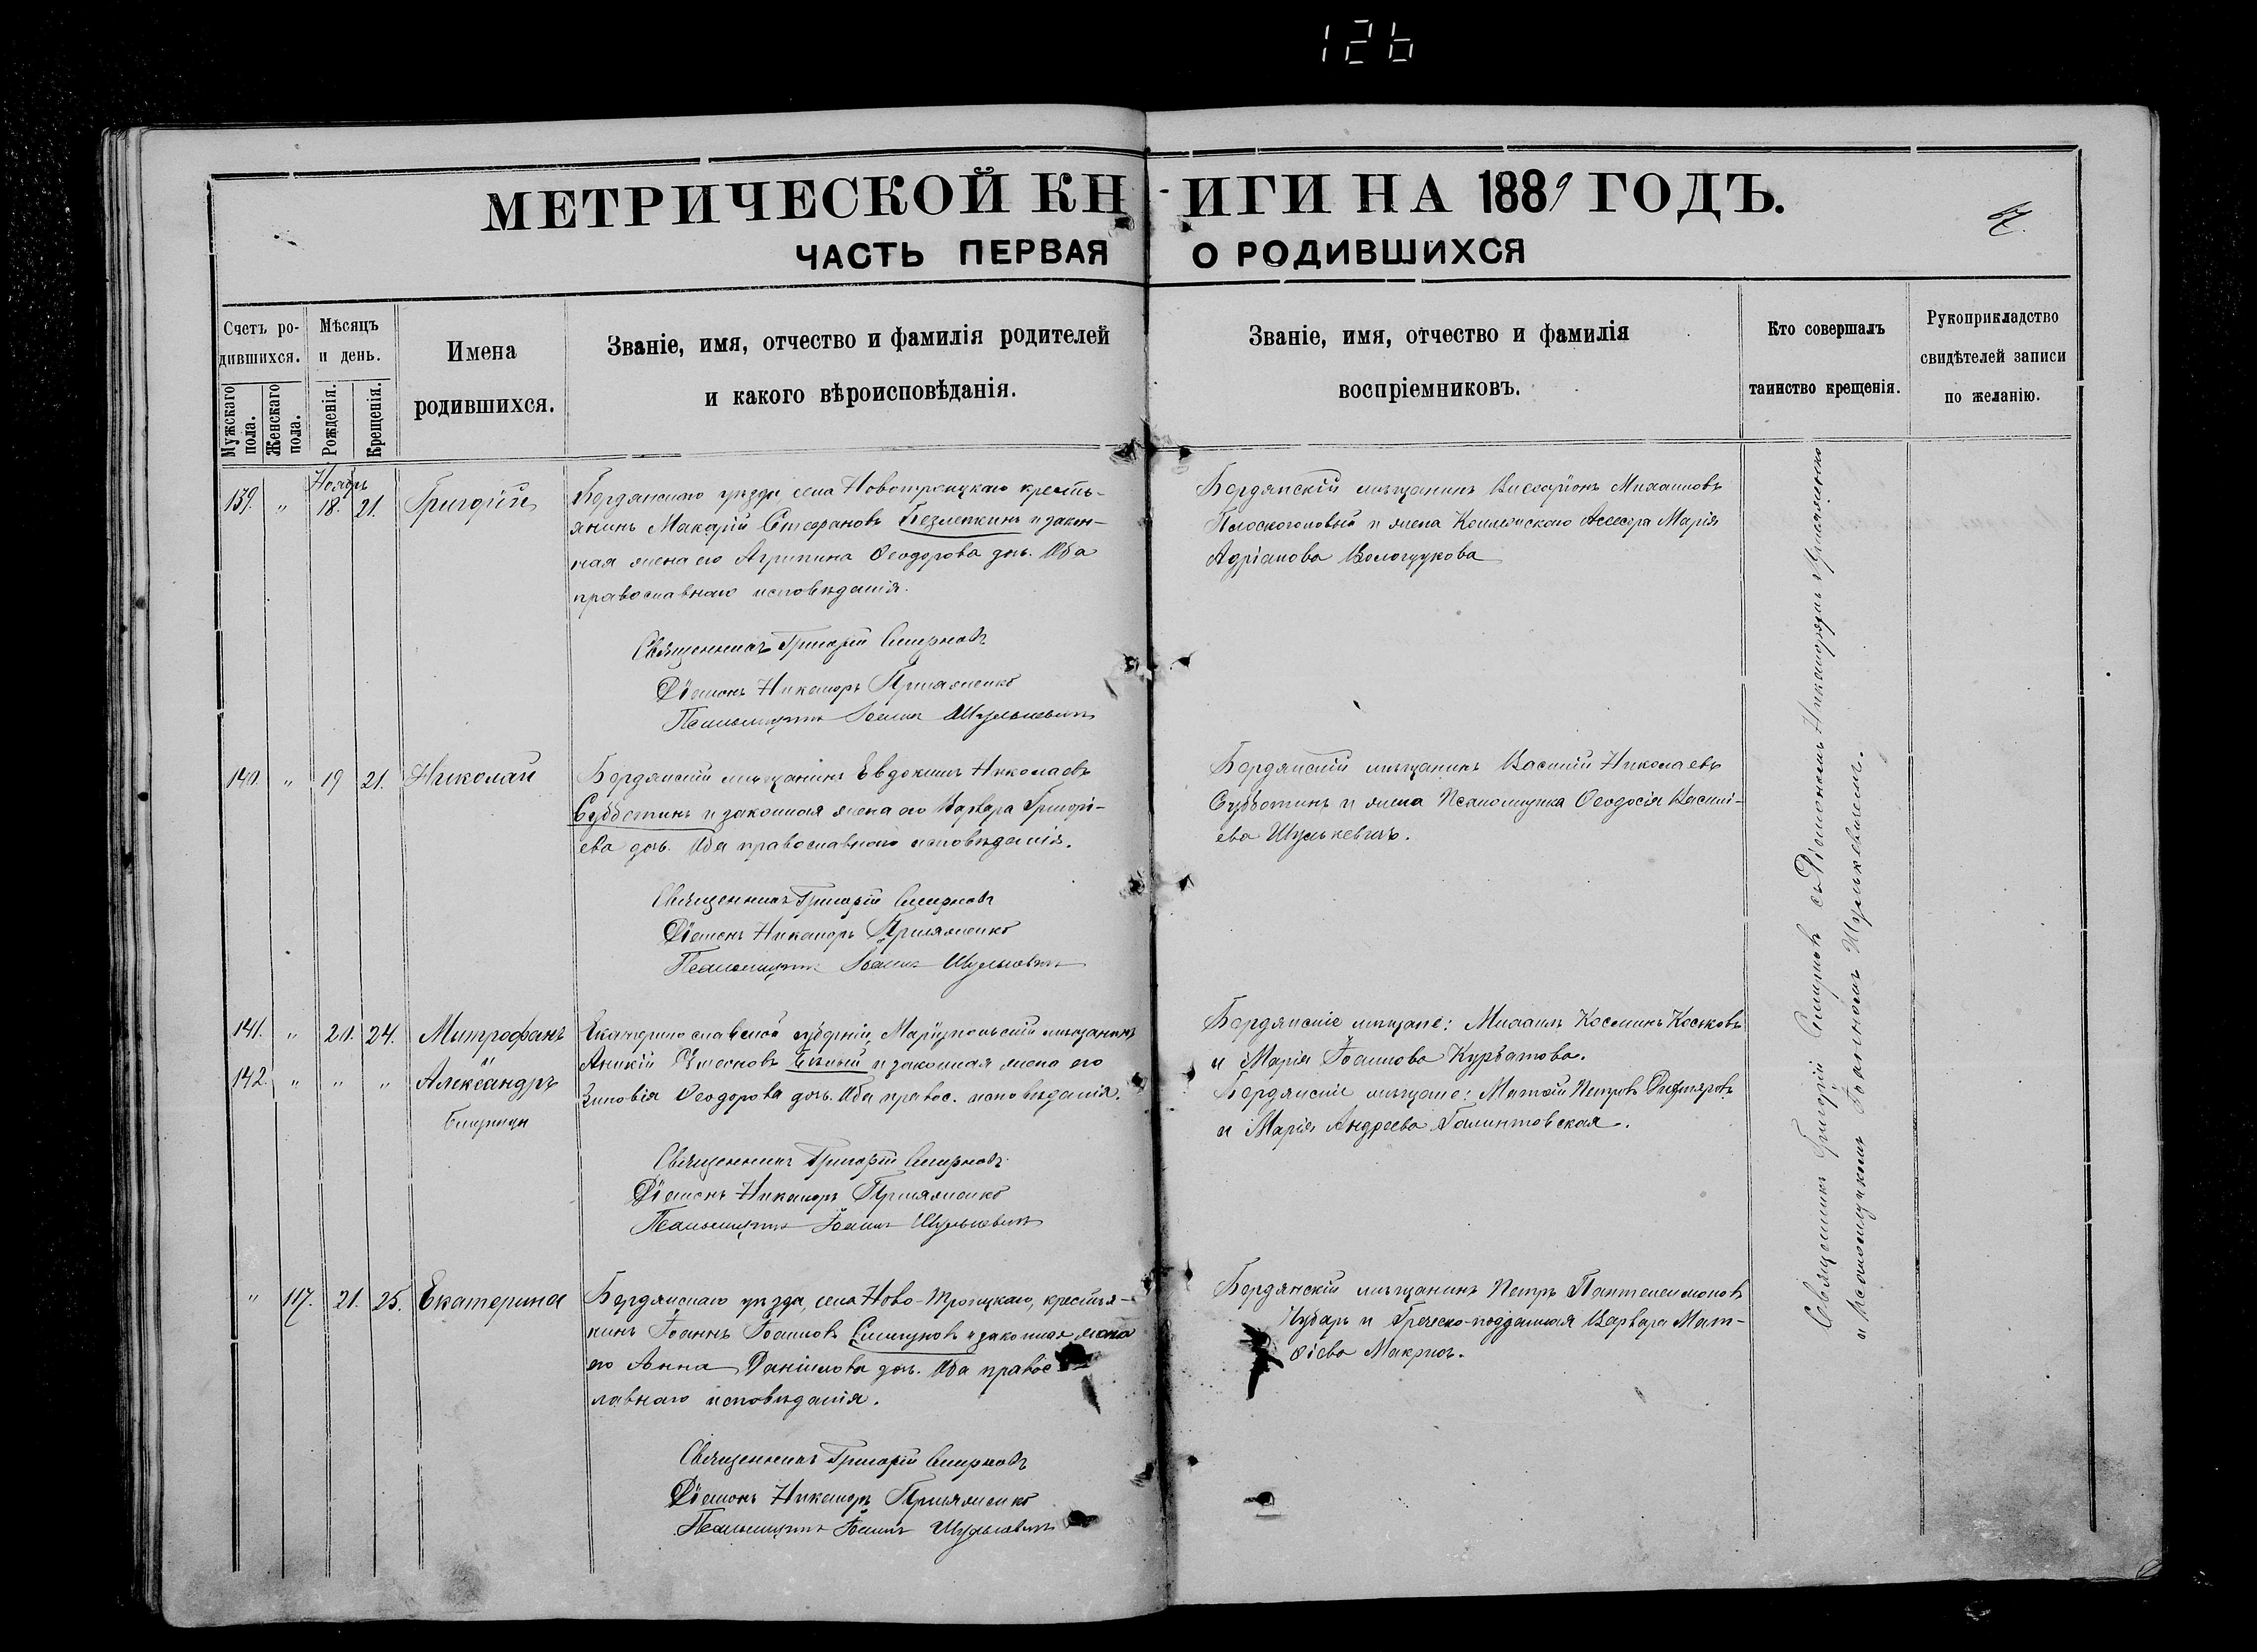 126
МЕТРИЧЕСКОЙ КНИГИ НА 1889 ГОДЪ.
67.
ЧАСТЬ ПЕРВАЯ О РОДИВШИХСЯ
Счетъ ро-
дившихся.
Мужскаго пола.
Женскаго пола.
Мѣсяцъ
и день.
Рожденія.
Крещенія.
Имена
родившихся.
Званіе, имя, отчество и фамилія родителей
и какого вѣроисповѣданія.
Званіе, имя, отчество и фамилія
воспріемниковъ.
Кто совершалъ
таинство крещенія.
Рукоприкладство
свидѣтелей записи
по желанію.
Ноябрь
139. " 18. 21. Григорій
Бердянскаго уѣзда села Новотроицкаго кресть-
янинъ Макарій Стефановъ Безлеткинъ и закон-
ная жена его Агрипина Ѳеодорова дочь. Оба
православнаго исповѣданія.
Священникъ Григорій Смирновъ
Діаконъ Никаноръ
Псаломщикъ Іоаннъ Шулькевичъ
Бердянскій мѣщанинъ Виссаріонъ Михаиловъ
Плоскоголовый и жена Коллежскаго Ассесора Марія
Адріанова
140. " 19 21. Николай
Бердянскій мѣщанинъ Евдокимъ Николаевъ
Субботинъ и законная жена его Варвара Григорі-
ева дочь. Оба православнаго исповѣданія.
Священникъ Григорій Смирновъ
Діаконъ Никаноръ
Псаломщикъ Іоаннъ Шулькевичъ
Бердянскій мѣщанинъ Василій Николаевъ
Субботинъ и жена Псаломщика Ѳеодосія Васили-
ева Шулькевичъ.
141. " 20. 24. Митрофанъ
142. " " " Александръ
Близнецы
Екатеринославской губерніи, Маріупольскій мѣщанинъ
Аникій и законная жена его
Зиновія Ѳеодорова дочь. Оба правос. исповѣданія.
Священникъ Григорій Смирновъ
Діаконъ Никаноръ
Псаломщикъ Іоаннъ Шулькевичъ
Бердянскіе мѣщане: Михаилъ Косминъ Костковъ
и Марія Іоаннова Курбатова.
Бердянскіе мѣщане: Матѳій Петровъ
и Марія Андреева Галинтовская.
" 117. 21. 25. Екатерина
Бердянскаго уѣзда, села Ново-Троицкаго, крестья-
нинъ Іоаннъ Іоанновъ и законная жена
его Анна Даніилова дочь. Оба правос-
лавнаго исповѣданія.
Священникъ Григорій Смирновъ
Діаконъ Никаноръ
Псаломщикъ Іоаннъ Шулькевичъ
Бердянскій мѣщанинъ Петръ Пантелеимоновъ
и Греческо-подданная Варвара Мат-
ѳіева Макрисъ.
Священникъ Григорій Смирновъ съ Діакономъ Никаноромъ
и Псаломщикомъ Іоанномъ Шулькевичемъ.